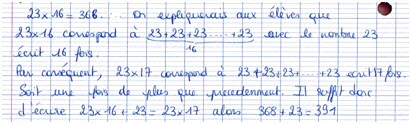 23x16 = 368.... On expliquerais aux élèves que
23x16 correspond à 23+23+23.....+23 avec le nombre 23
16
écrit 16 fois.
Par conséquent, 23x17 correspond à 23+23+23+....+23 écrit 17 fois.
Soit une fois de plus que precedemment. Il suffit donc
d'écrire 23x16 + 23 = 23x17 alors 368+23 = 391